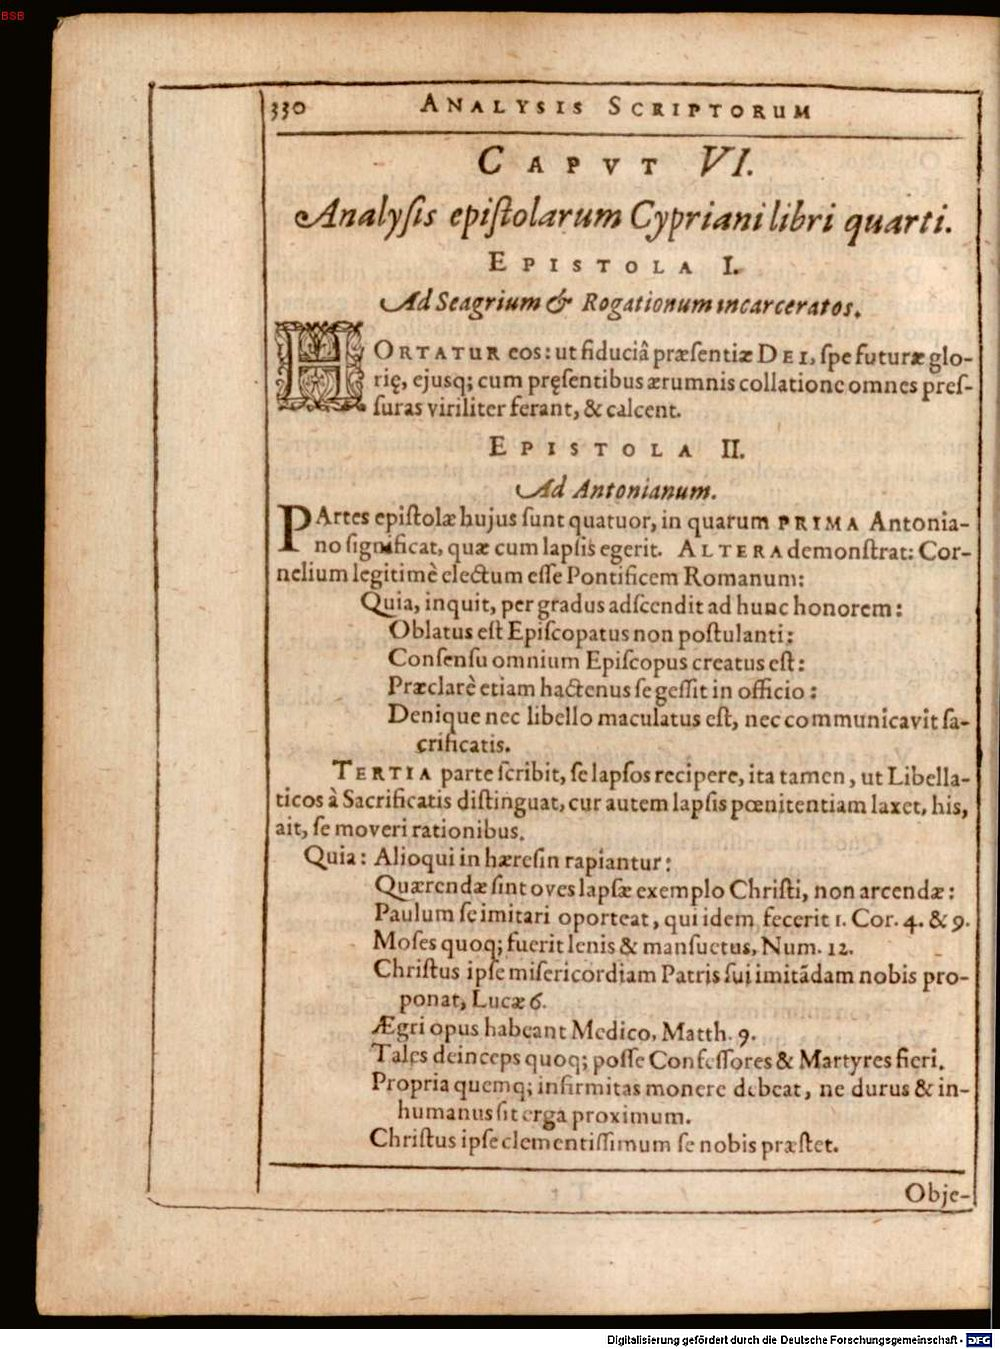 BSB
330 ANALYSIS SCRIPTORUM
CAPVT VI.
Analyſis epiſtolarum Cypriani libri quarti.
EPISTOLA I.
Ad Seagrium & Rogationum incarceratos.
HORTATUR eos: ut fiduciâ præſentiæ DEI, ſpe futuræ glo-
rię, ejusq; cum pręſentibus ærumnis collatione omnes preſ-
ſuras viriliter ferant, & calcent.
EPISTOLA II.
Ad Antonianum.
PArtes epiſtolæ hujus ſunt quatuor, in quarum PRIMA Antonia-
no ſignificat, quæ cum lapſis egerit. ALTERA demonſtrat: Cor-
nelium legitimè electum eſſe Pontificem Romanum:
Quia, inquit, per gradus adſcendit ad hunc honorem:
Oblatus eſt Epiſcopatus non poſtulanti:
Conſenſu omnium Epiſcopus creatus eſt:
Præclarè etiam hactenus ſe geſſit in officio:
Denique nec libello maculatus eſt, nec communicavit ſa-
crificatis.
TERTIA parte ſcribit, ſe lapſos recipere, ita tamen, ut Libella-
ticos à Sacrificatis diſtinguat, cur autem lapſis pœnitentiam laxet, his,
ait, ſe moveri rationibus.
Quia: Alioqui in hæreſin rapiantur:
Quærendæ ſint oves lapſæ exemplo Chriſti, non arcendæ:
Paulum ſe imitari oporteat, qui idem fecerit 1. Cor. 4. & 9.
Moſes quoq; fuerit lenis & manſuetus, Num. 12.
Chriſtus ipſe miſericordiam Patris ſui imitãdam nobis pro-
ponat, Lucæ 6.
Ægri opus habeant Medico, Matth. 9.
Tales deinceps quoq; poſſe Confeſſores & Martyres fieri.
Propria quemq; infirmitas monere debeat, ne durus & in-
humanus ſit erga proximum.
Chriſtus ipſe clementiſſimum ſe nobis præſtet.
Obje-
Digitalisierung gefördert durch die Deutsche Forschungsgemeinschaft - DFG